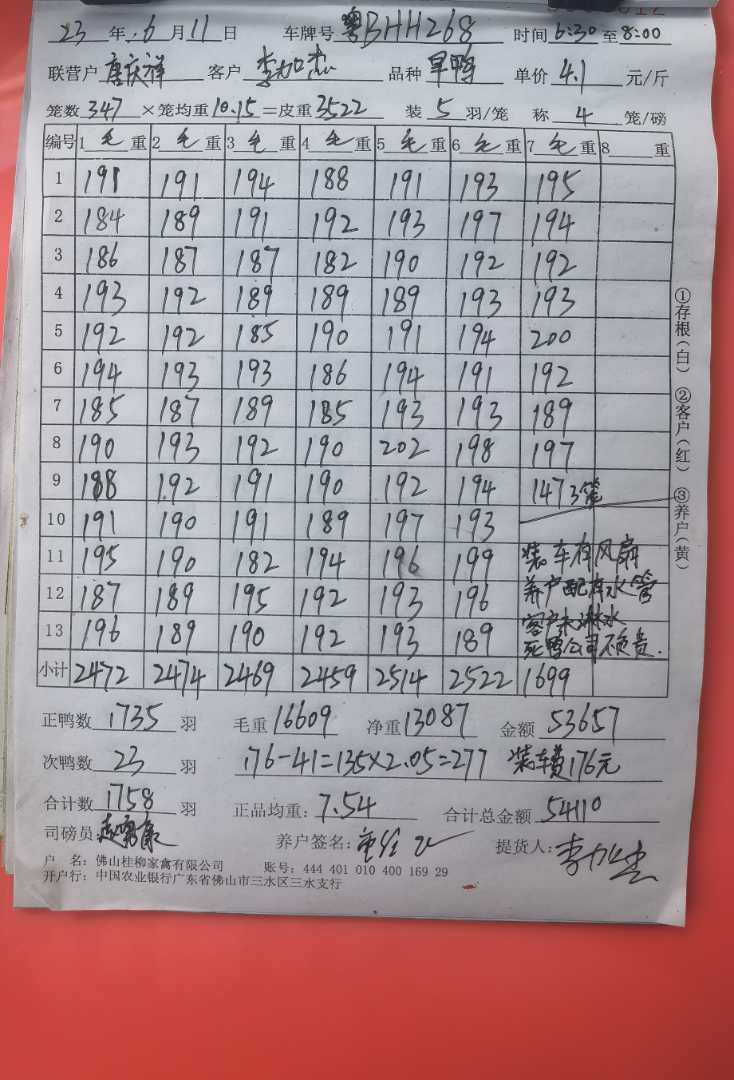 23年.6月11日 车牌号 粤BHH268 时间6:30至8:00
联营户 唐庆祥 客户 李加杰 品种 旱鸭 单价 4.1 元/斤
笼数347×笼均重10.15=皮重3522 装 5 羽/笼 称 4 笼/磅
编号 1毛重 2毛重 3毛重 4毛重 5毛重 6毛重 7毛重 8重
1 191 191 194 188 191 193 195
2 184 189 191 192 193 197 194
3 186 187 187 182 190 192 192
4 193 192 189 189 189 193 193
5 192 192 185 190 191 194 200
6 194 193 193 186 194 191 192
7 185 187 189 185 193 193 189
8 190 193 192 190 202 198 197
9 188 192 191 190 192 194 147 3笼
10 191 190 191 189 197 193
11 195 190 182 194 196 199 装车有风扇
12 187 189 195 192 193 196 养户配有水管
客户未淋水
13 196 189 190 192 193 189 死鸭公司不负责.
小计 2472 2474 2469 2459 2514 2522 1699
①存根(白) ②客户(红) ③养户(黄)
正鸭数 1735 羽 毛重 16609 净重 13087 金额 53657
次鸭数 23 羽 176-41=135×2.05=277 装车费176元
合计数 1758 羽 正品均重: 7.54 合计总金额 54110
司磅员: 养户签名: 提货人: 李加杰
户 名: 佛山桂柳家禽有限公司 账号: 444 401 010 400 169 29
开户行: 中国农业银行广东省佛山市三水区三水支行